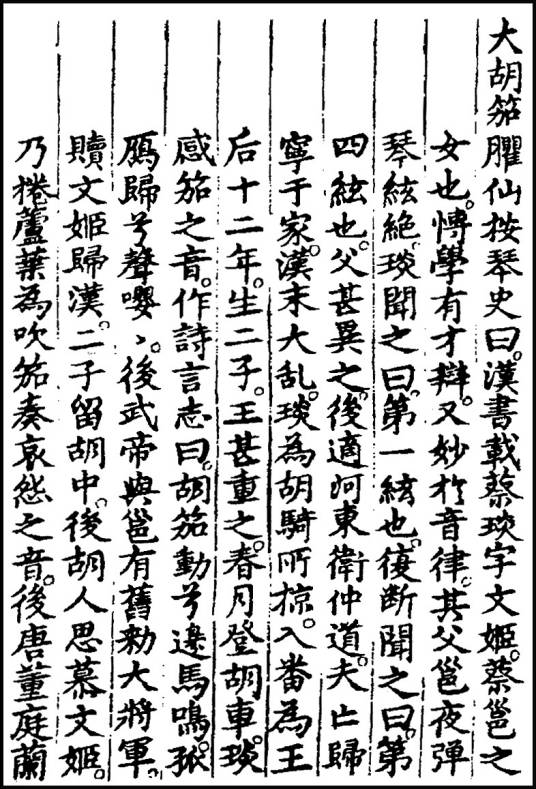 大胡笳臞仙按琴史曰。漢書載蔡琰字文姬。蔡邕之
女也。愽學有才辯。又妙扵音律。其父邕夜弾
琴絃絶。琰聞之曰。第一絃也。復断聞之曰。第
四絃也。父甚異之。後適河東衛仲道。夫亡歸
寧于家。漢末大乱。琰為胡騎所掠。入畨為王
后十二年。生二子。王甚重之。春月登胡車。琰
感笳之音。作詩言志曰。胡笳動兮邉馬鳴。孤
鴈歸兮聲嚶〻。後武帝與邕有舊勑大將軍。
贖文姬歸漢。二子留胡中。後胡人思慕文姬。
乃捲蘆葉為吹笳奏哀怨之音。後唐董庭蘭